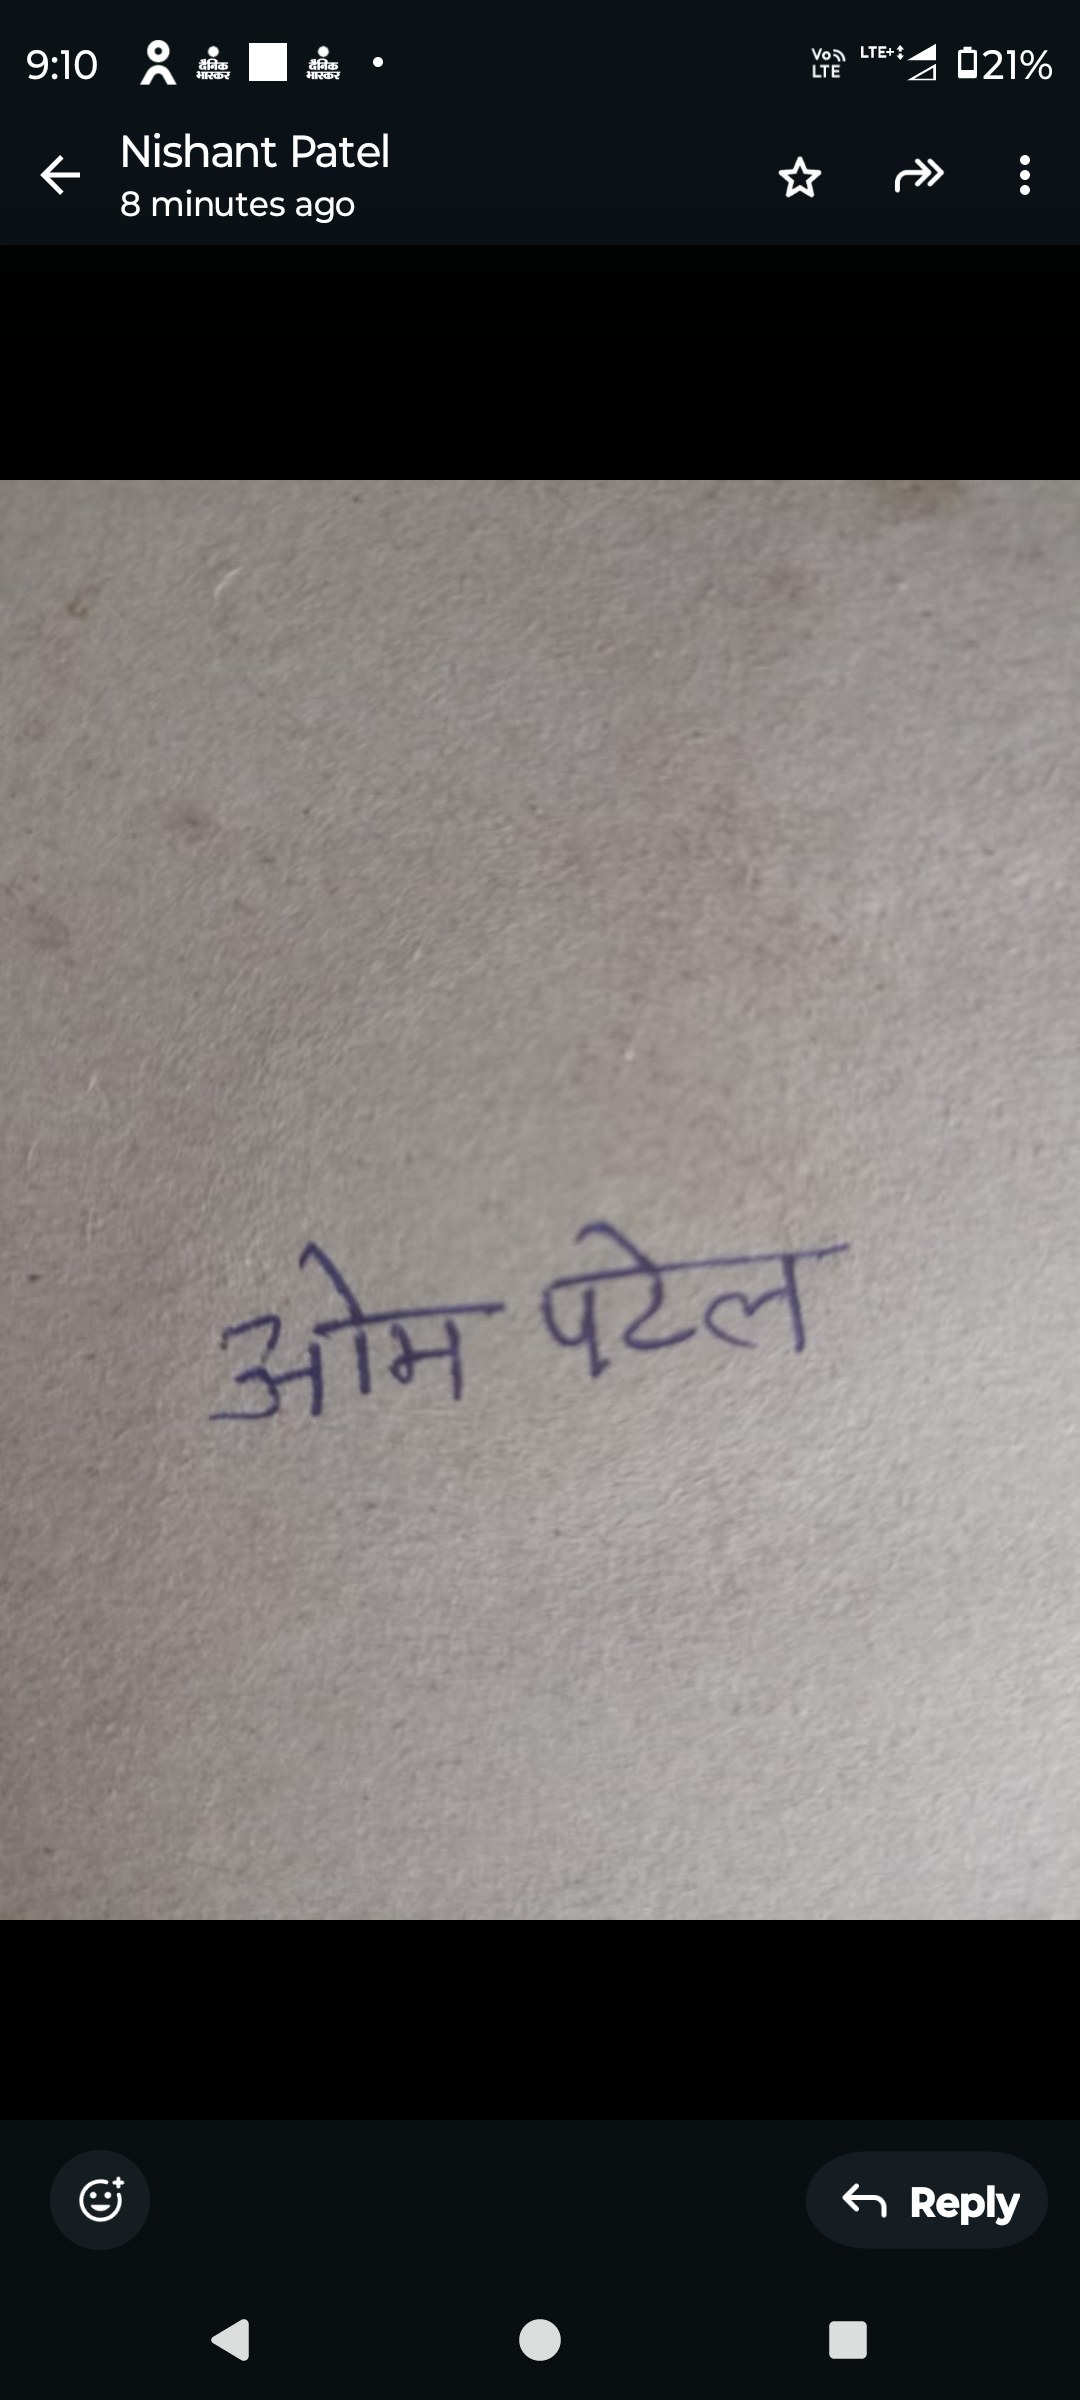 9:10 दैनिक भास्कर दैनिक भास्कर Vo LTE LTE+ 21%
Nishant Patel
8 minutes ago
ओम पटेल
Reply